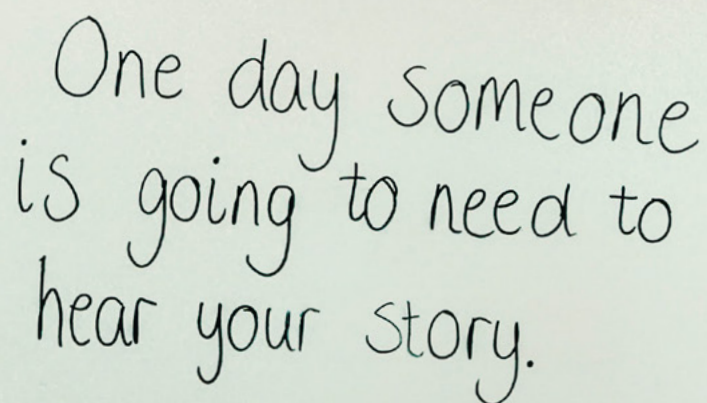 One day someone
is going to need to
hear your story.